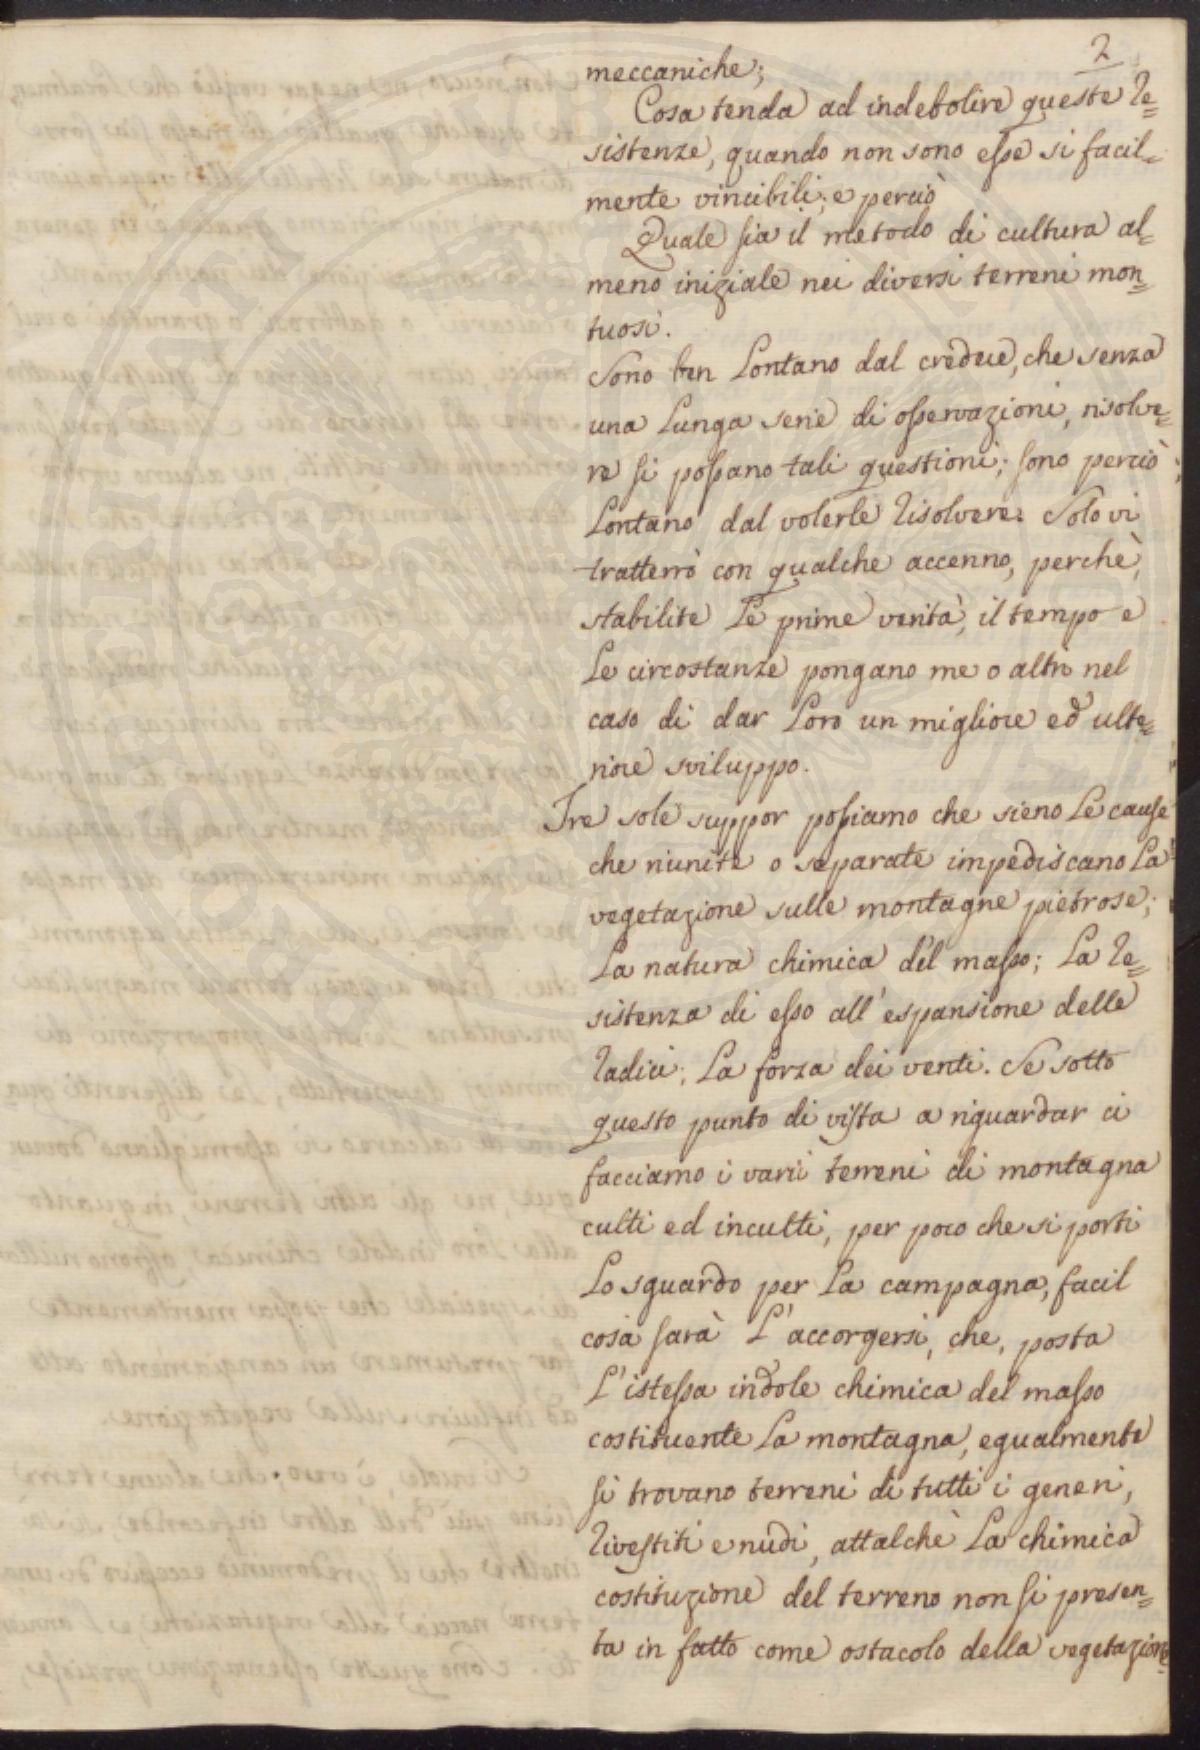 2
meccaniche;
Cosa tenda ad indebolire queste re=
sistenze, quando non sono esse si facil=
mente vincibili; e perciò
Quale sia il metodo di cultura al=
meno iniziale nei diversi terreni mon=
tuosi.
Sono ben lontano dal credere, che senza
una lunga serie di osservazioni, risolve=
re si possano tali questioni; sono perciò
lontano dal volerle risolvere. Solo vi
tratterrò con qualche accenno, perchè,
stabilite le prime verità, il tempo e
le circostanze pongano me o altri nel
caso di dar loro un migliore ed ulte=
riore sviluppo.
Tre sole suppor possiamo che sieno le cause
che riunite o separate impediscano la
vegetazione sulle montagne pietrose;
la natura chimica del masso; la re=
sistenza di esso all'espansione delle
radici; la forza dei venti. Se sotto
questo punto di vista a riguardar ci
facciamo i varii terreni di montagna
culti ed inculti, per poco che si porti
lo sguardo per la campagna, facil
cosa sarà l'accorgersi, che, posta
l'istessa indole chimica del masso
costituente la montagna, egualmente
si trovano terreni di tutti i generi,
rivestiti e nudi, attalchè la chimica
costituzione del terreno non si presen=
ta in fatto come ostacolo della vegetazione